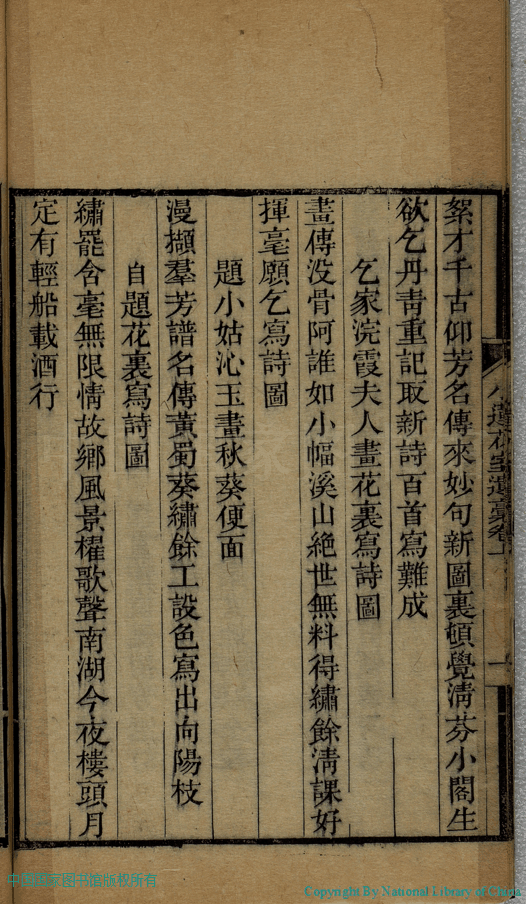 絮才千古仰芳名傳來妙句新圖裏頓覺淸芬小閣生
欲乞丹靑重記取新詩百首寫難成
乞家浣霞夫人畫花裏寫詩圖
畫傳没骨阿誰如小幅溪山絕世無料得繡餘淸課好
揮毫願乞寫詩圖
題小姑沁玉畫秋葵便面
漫擷羣芳譜名傳黃蜀葵繡餘工設色寫出向陽枝
自題花裏寫詩圖
繡罷含毫無限情故鄉風景櫂歌聲南湖今夜樓頭月
定有輕船載酒行
中国国家图书馆版权所有
Copyright By National Library of China